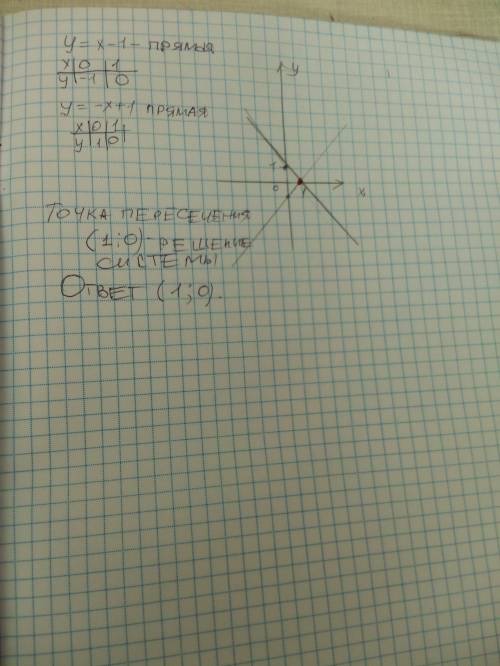 y = x - 1 - прямая
x | 0 | 1
y | -1 | 0
y = -x + 1 прямая
x | 0 | 1
y | 1 | 0
y
1
0
1
x
Точка пересечения
(1; 0) - решение
системы
Ответ (1; 0).